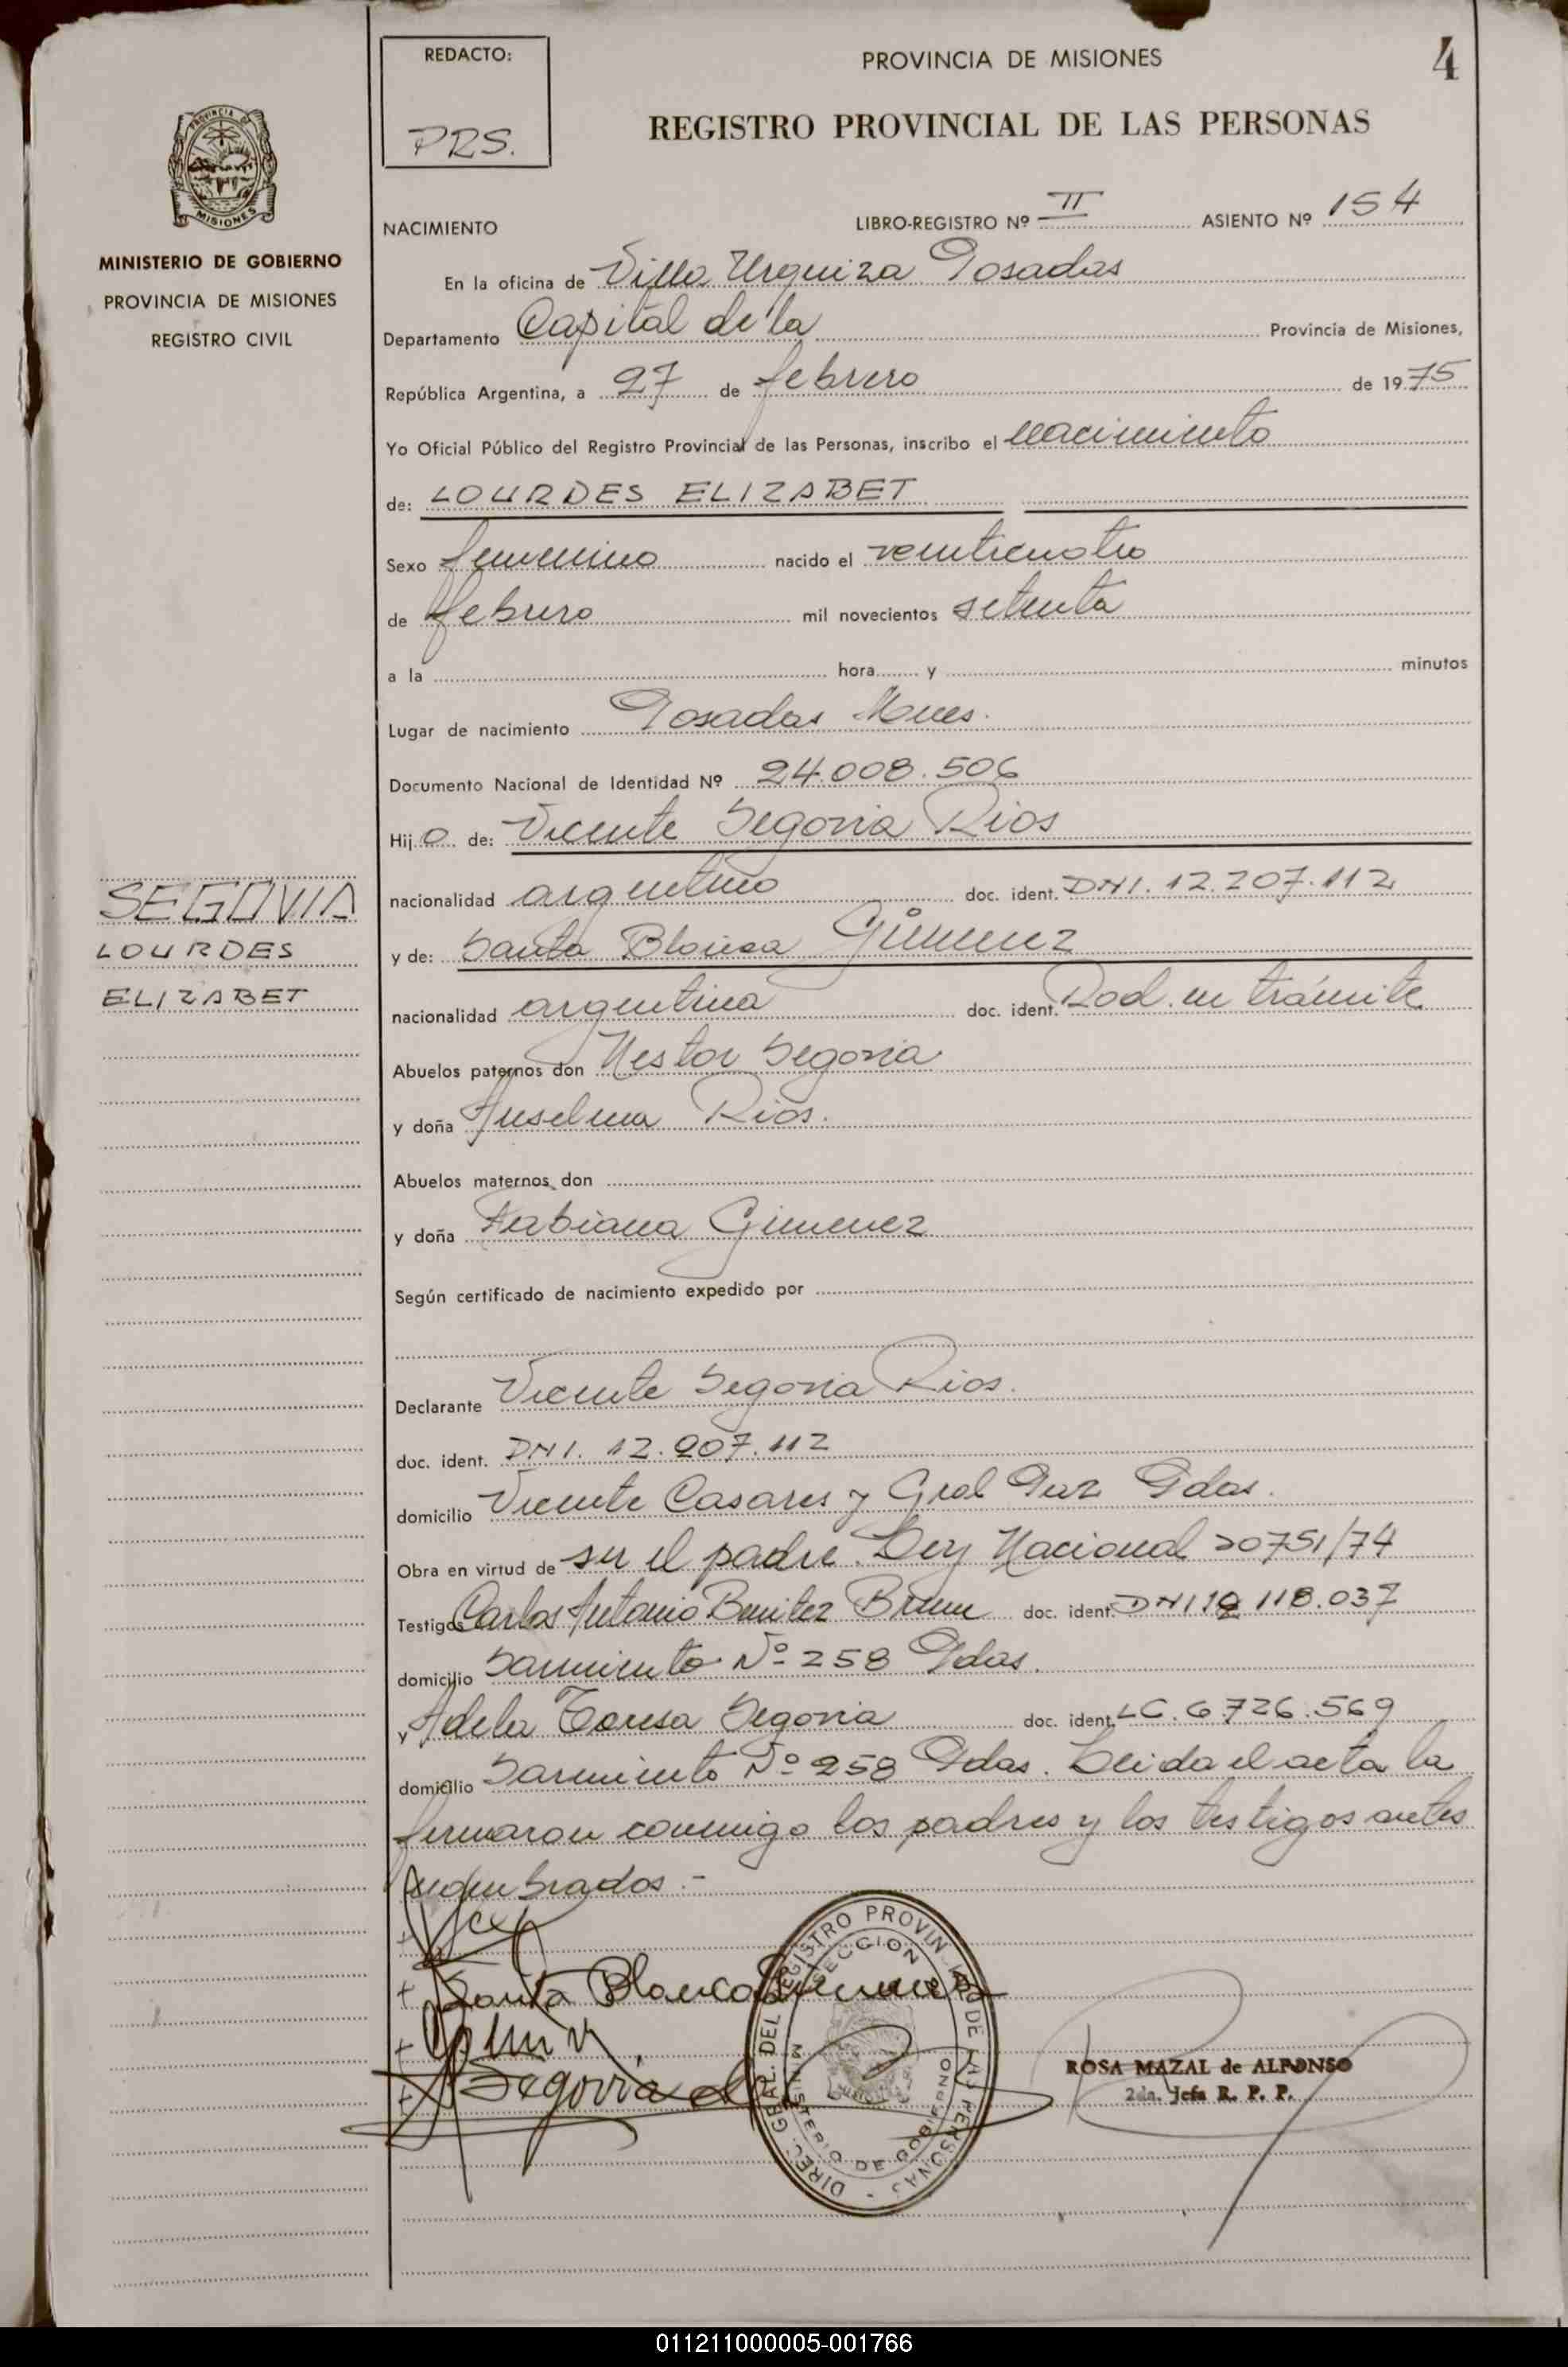 REDACTO:
PRS.
PROVINCIA DE MISIONES
4
REGISTRO PROVINCIAL DE LAS PERSONAS
PROVINCIA DE
MISIONES
MINISTERIO DE GOBIERNO
PROVINCIA DE MISIONES
REGISTRO CIVIL
NACIMIENTO LIBRO-REGISTRO Nº II ASIENTO Nº 154
En la oficina de Villa Urquiza Posadas
Departamento Capital de la Provincia de Misiones,
República Argentina, a 27 de febrero de 1975
Yo Oficial Público del Registro Provincial de las Personas, inscribo el nacimiento
de: LOURDES ELIZABET
Sexo femenino nacido el veinticuatro
de febrero mil novecientos setenta
a la hora y minutos
Lugar de nacimiento Posadas Mnes.
Documento Nacional de Identidad Nº 24.008.506
Hij o de: Vicente Segovia Rios
nacionalidad argentino doc. ident. DNI. 12.207.112
y de: Santa Blanca Gimenez
nacionalidad argentina doc. ident. Rad. en trámite
Abuelos paternos don Nestor Segovia
y doña Anselma Rios.
Abuelos maternos don
y doña Fabiana Gimenez
Según certificado de nacimiento expedido por
Declarante Vicente Segovia Rios.
doc. ident. DNI. 12.207.112
domicilio Vicente Casares y Gral Paz Pdas.
Obra en virtud de ser el padre. Ley Nacional 20751/74
Testigos Carlos Antonio Benitez Brum doc. ident. DNI 118.037
domicilio Sarmiento Nº 258 Pdas.
y Adela Teresa Segovia doc. ident. LC. 6.726.569
domicilio Sarmiento Nº 258 Pdas. Leida el acta la
firmaron conmigo los padres y los testigos antes
nombrados.-
SEGOVIA
LOURDES
ELIZABET
Santa Blanca Gimenez
Segovia de
DIREC. GRAL. DEL REGISTRO PROVINCIAL DE LAS PERSONAS
SECCION
MINISTERIO DE GOBIERNO
ROSA MAZAL de ALFONSO
2da. Jefa R. P. P.
011211000005-001766